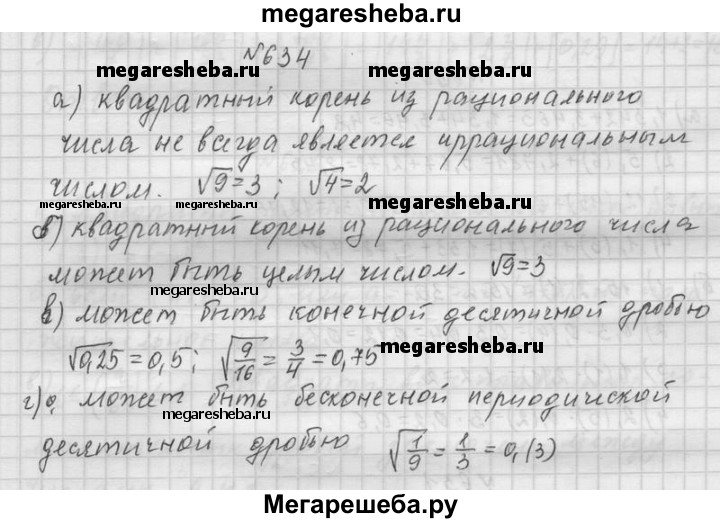 megaresheba.ru
№634
megaresheba.ru megaresheba.ru
а) квадратный корень из рационального
числа не всегда является иррациональным
числом. √9=3; √4=2
megaresheba.ru megaresheba.ru megaresheba.ru
б) квадратный корень из рационального числа
может быть целым числом. √9=3
megaresheba.ru
в) может быть конечной десятичной дробью
√0,25 = 0,5; √9/16 = 3/4 = 0,75
megaresheba.ru
г) может быть бесконечной периодической
megaresheba.ru
десятичной дробью √1/9 = 1/3 = 0,(3)
Мегарешеба.ру